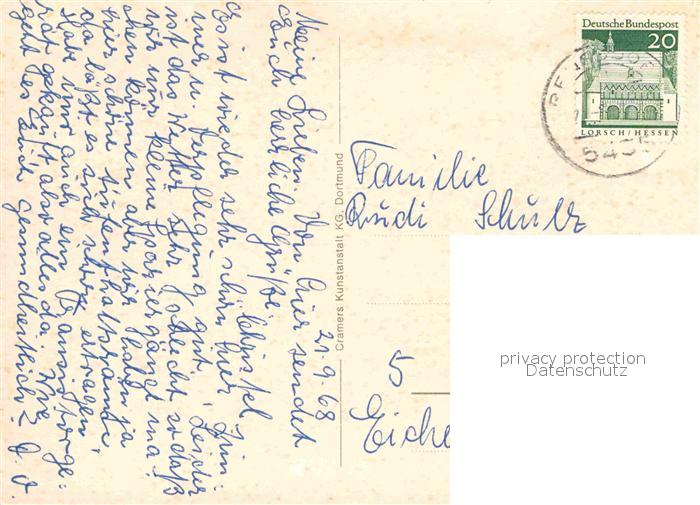 21.9.68
Meine Lieben! Von hier sendet
Euch herzliche Grüße Christel
Es ist wieder sehr schön hier Zim-
mer u. Verpflegung gut, Leider
ist das Wetter sehr schlecht sodaß
wir nur kleine Spaziergänge ma-
chen können aber wir haben ja
hier schöne Aufenthaltsräume,
da läßt es sich schon ertragen,
Habe mir auch ein Transistorge-
rät gekauft also alles da. Wie
geht es Euch gesundheitlich?
Cramers Kunstanstalt KG, Dortmund
Deutsche Bundespost
20
LORSCH/HESSEN
545
Familie
Rudi Schulz
5
Eiche
privacy protection
Datenschutz